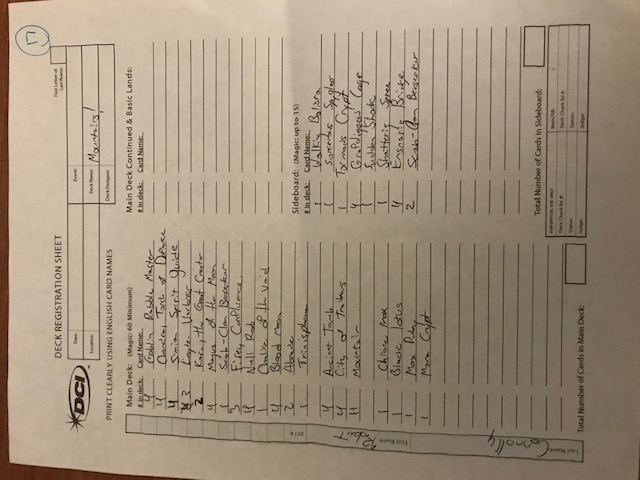 17
DCI
DECK REGISTRATION SHEET
First Letter of
Last Name
Date:
Event:
Location:
Deck Name: Mountains!
Deck Designer:
PRINT CLEARLY USING ENGLISH CARD NAMES
Main Deck: (Magic: 60 Minimum)
# in deck: Card Name:
4 Goblin Rabble Master
4 Chandra, Torch of Defiance
4 Simian Spirit Guide
3
2 Karn, the Great Creator
4 Magus of the Moon
1 Scab-Clan Berserker
3 Firey Confluence
4 Null Rod
1 Chalice of the Void
4 Blood Moon
2 Abrade
1 Trinisphere
4 Ancient Tomb
4 City of Traitors
11 Mountain
1 Chrome Mox
1 Black lotus
1 Mox Ruby
1 Mana Crypt
Total Number of Cards in Main Deck:
Main Deck Continued & Basic Lands:
# in deck: Card Name:
Sideboard: (Magic: up to 15)
# in deck: Card Name:
1 Walking Balista
1 Sorcerous Spyglass
1 Tormods Crypt
4 Grafdiggers Cage
1 Sudden Shock
1 Shattering Spree
4 Ensnaring Bridge
2 Scab-Clan Berserker
Total Number of Cards in Sideboard:
FOR OFFICIAL USE ONLY
Main/SB: /
Deck Check Rd #:
Deck Check Rd #:
Status:
Status:
Judge:
Judge:
Last Name: Connolly
First Name: Robert
DCI #: